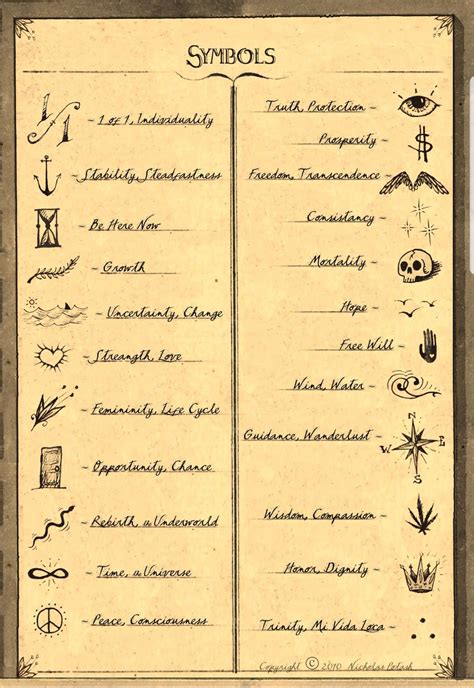 SYMBOLS
1/1 ~ 1 of 1, Individuality
~ Stability, Steadfastness
~ Be Here Now
~ Growth
~ Uncertainty, Change
~ Streangth, Love
~ Femininity, Life Cycle
~ Opportunity, Chance
~ Rebirth, Underworld
~ Time, Universe
~ Peace, Consciousness
Truth, Protection ~
Prosperity ~ $
Freedom, Transcendence ~
Consistancy ~
Mortality ~
Hope ~
Free Will ~
Wind, Water ~
Guidance, Wanderlust ~ N W E S
Wisdom, Compassion ~
Honor, Dignity ~
Trinity, Mi Vida Loca ~
Copyright © 2010 Nicholas Polash